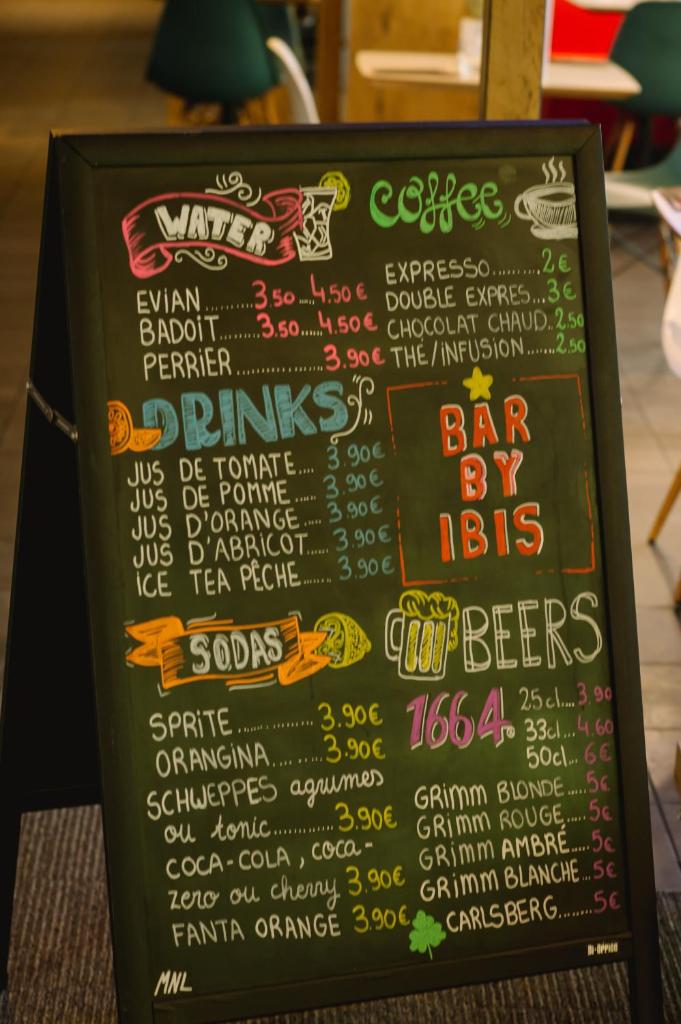 WATER
EVIAN ......... 3.50 ... 4.50 €
BADOIT ....... 3.50 ..... 4.50 €
PERRIER ................ 3.90 €
Coffee
EXPRESSO .......... 2 €
DOUBLE EXPRES... 3 €
CHOCOLAT CHAUD.. 2.50
THÉ/INFUSION ....... 2.50
DRINKS
JUS DE TOMATE.... 3.90€
JUS DE POMME ..... 3.90€
JUS D'ORANGE ..... 3.90€
JUS D'ABRICOT..... 3.90€
ICE TEA PÊCHE...... 3.90€
BAR
BY
IBIS
SODAS
SPRITE ............... 3.90€
ORANGINA .......... 3.90€
SCHWEPPES agrumes
ou tonic ............. 3.90€
COCA-COLA, coca-
zero ou cherry 3.90€
FANTA ORANGE 3.90€
BEERS
1664. 25cl.... 3.90
33cl... 4.60
50cl... 6€
GRIMM BLONDE..... 5€
GRIMM ROUGE ..... 5€
GRIMM AMBRÉ..... 5€
GRIMM BLANCHE... 5€
CARLSBERG........ 5€
MNL
BI-OFFICE